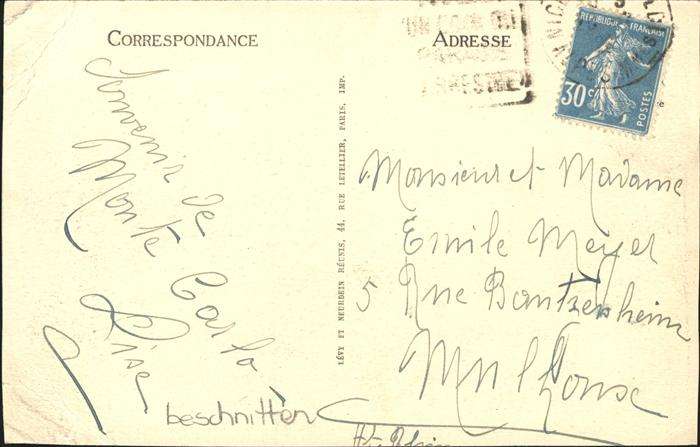 CORRESPONDANCE
Souvenir de
Monte Carlo
Lise
beschnitten
LÉVY ET NEURDEIN RÉUNIS, 44, RUE LETELLIER, PARIS, IMP.
ADRESSE
RÉPUBLIQUE FRANÇAISE
30c
POSTES
Monsieur et Madame
Emile Meyer
5 Rue Bantzenheim
Mulhouse
Ht. Rhin